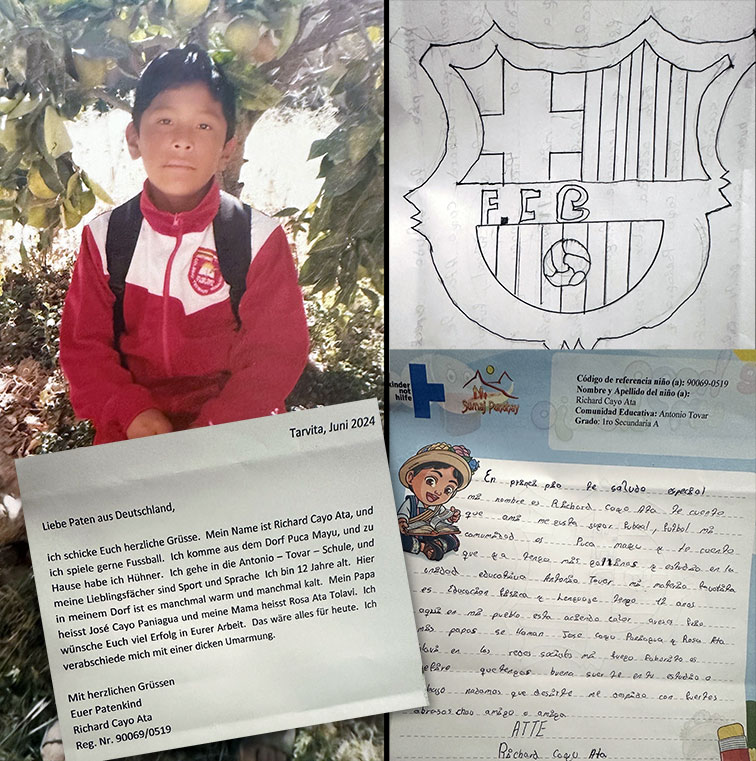 F.C B
kinder
not
hilfe
Sumaj Punchay
Código de referencia niño (a): 90069-0519
Nombre y Apellido del niño (a):
Richard Cayo Ata
Comunidad Educativa: Antonio Tovar
Grado: 1ro Secundaria A
Tarvita, Juni 2024
Liebe Paten aus Deutschland,
Ich schicke Euch herzliche Grüsse. Mein Name ist Richard Cayo Ata, und
ich spiele gerne Fussball. Ich komme aus dem Dorf Puca Mayu, und zu
Hause habe ich Hühner. Ich gehe in die Antonio – Tovar – Schule, und
meine Lieblingsfächer sind Sport und Sprache Ich bin 12 Jahre alt. Hier
in meinem Dorf ist es manchmal warm und manchmal kalt. Mein Papa
heisst José Cayo Paniagua und meine Mama heisst Rosa Ata Tolavi. Ich
wünsche Euch viel Erfolg in Eurer Arbeit. Das wäre alles für heute. Ich
verabschiede mich mit einer dicken Umarmung.
Mit herzlichen Grüssen
Euer Patenkind
Richard Cayo Ata
Reg. Nr. 90069/0519
En princi pio te saludo especial
mi nombre es Richard Coyo Ata te cuento
que ami me gusta jugar futbol, futbol mi
comunidad es Puca mayu y te cuento
que ya tengo mis gallinas y estudio en la
unidad educativa Antonio Tovar mi materia favorita
es Educacion fisica y Lenguaje tengo 12 años
aqui en mi pueblo esta aciendo calor aveces frio
mis papas se llaman Jose coyu Paniagua y Rosa Ata
en las redes sociales mi juego faborito es
que tengas buena suerte en tu estudio o
nadamas que desirte me despido con fuertes
abrasos chao amigo o amiga
ATTE
Richard Coyu Ata